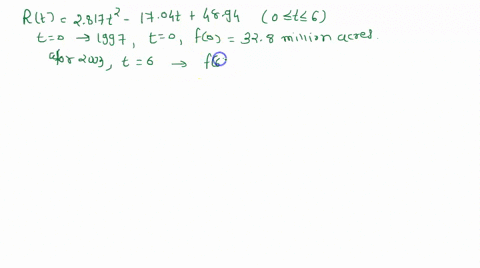 R(t) = 2.817t² - 17.04t + 48.94 (0≤t≤6)
t=0 → 1997, t=0, f(0) = 32.8 million acres.
after 2003, t = 6 → f(6